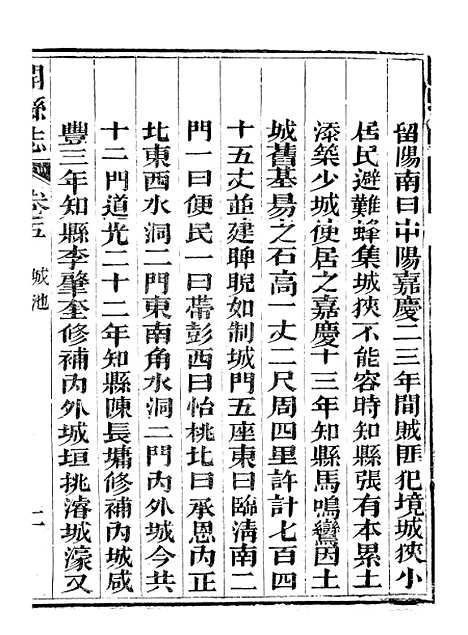 留陽南曰中陽嘉慶二三年間賊匪犯境城狹小
居民避難蜂集城狹不能容時知縣張有本累土
添築少城使居之嘉慶十三年知縣馬鳴鸞因土
城舊基易之石高一丈二尺周四里許計七百四
十五丈並建睥睨如制城門五座東曰臨淸南二
門一曰便民一曰帶彭西曰怡桃北曰承恩內正
北東西水洞二門東南角水洞二門內外城今共
十二門道光二十二年知縣陳長墉修補內城咸
豐三年知縣李肇奎修補內外城垣挑濬城濠又
開縣志
卷之五
城池
二